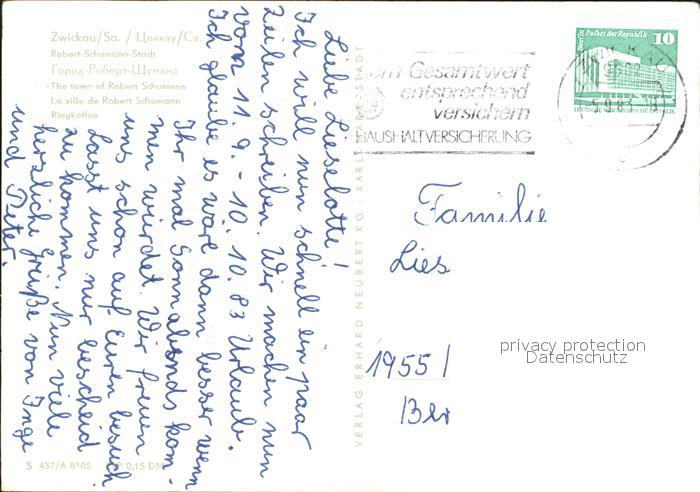 Zwickau/Sa. / Цвикау/Са.
Robert-Schumann-Stadt
Город-Роберт-Шумана
The town of Robert Schumann
La ville de Robert Schumann
Ringkaffee
Liebe Lieselotte!
Ich will nun schnell ein paar
Zeilen schreiben. Wir machen nun
vom 11.9. - 10.10.83 Urlaub.
Ich glaube es wäre dann besser wenn
Ihr mal Sonnabends kom-
men würdet. Wir freuen
uns schon auf Euren besuch
Lasst uns nur bescheid
zu kommen. Nun viele
herzliche Grüße von Inge
und Peter.
S 437/A 8105 0,15 DM
VERLAG ERHARD NEUBERT KG · KARL-MARX-STADT
zum Gesamtwert
entsprechend
versichern
HAUSHALTVERSICHERUNG
Berlin Palast der Republik 10
Familie
Lies
1955 /
Ber
privacy protection
Datenschutz